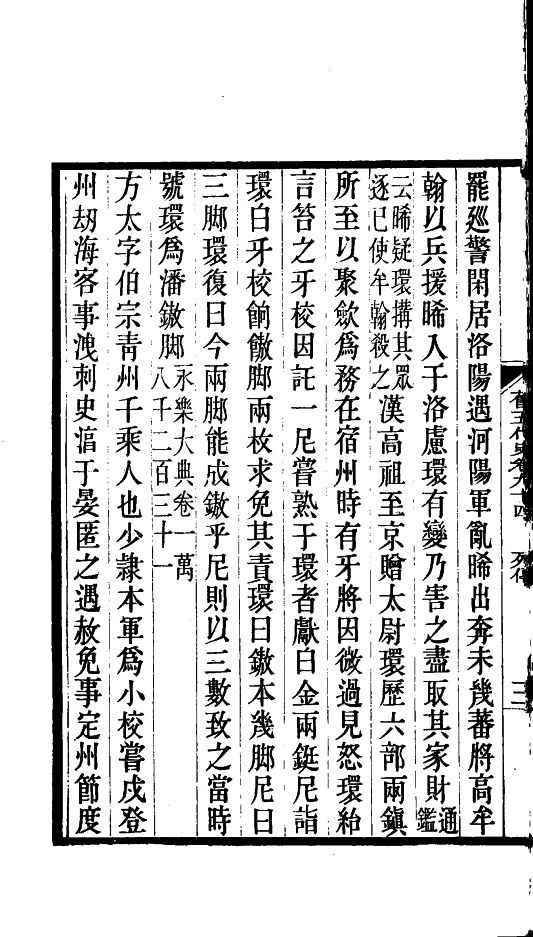 罷廵警閑居洛陽遇河陽軍亂晞出奔未幾蕃將高牟
翰以兵援晞入于洛慮環有變乃害之盡取其家財通鑑
云晞疑環搆其眾逐已使牟翰殺之漢高祖至京贈太尉環歷六部兩鎭
所至以聚斂爲務在宿州時有牙將因微過見怒環紿
言笞之牙校因託一尼嘗熟于環者獻白金兩鋌尼詣
環白牙校餉鐓脚兩枚求免其責環曰鐓本幾脚尼曰
三脚環復曰今兩脚能成鐓乎尼則以三數致之當時
號環爲潘鐓脚永樂大典卷一萬八千二百三十一
方太字伯宗靑州千乘人也少隷本軍爲小校嘗戍登
州刼海客事洩刺史淸于晏匿之遇赦免事定州節度
舊五代史卷九十四 列傳 三